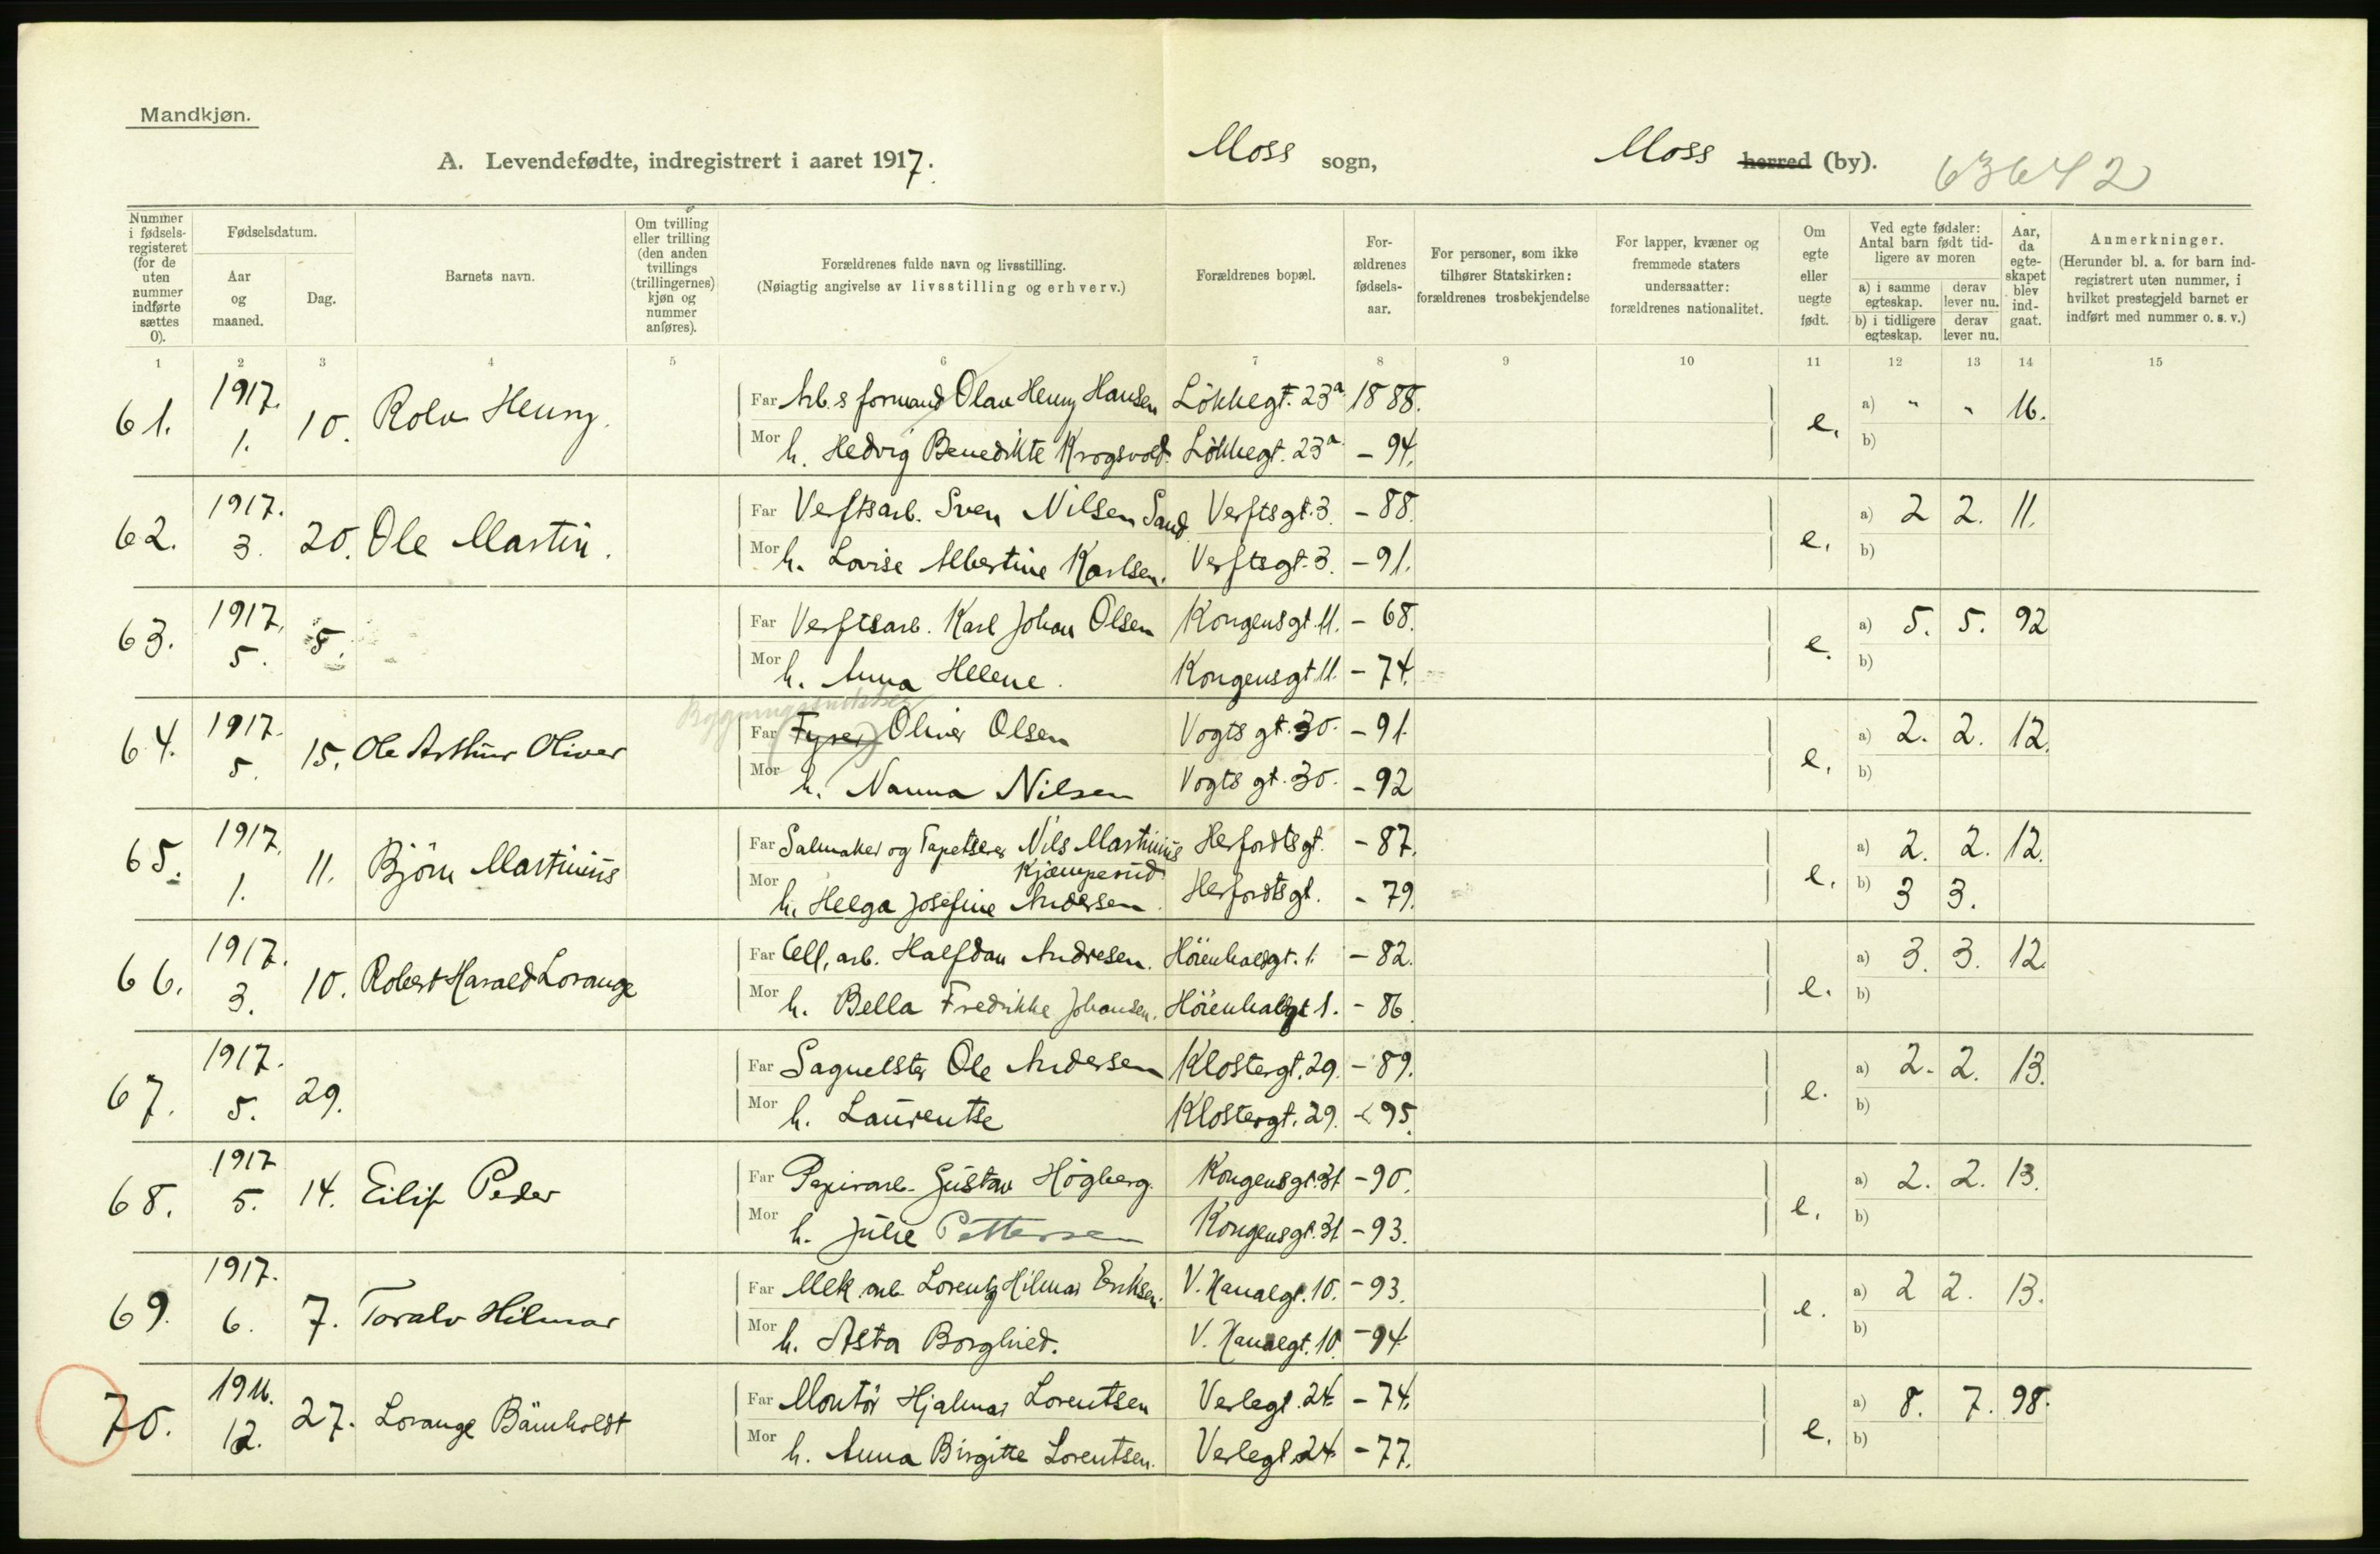 Mandkjøn.
A. Levendefødte, indregistrert i aaret 1917. Moss sogn, Moss herred (by). 63642
Nummer i fødsels-registeret (for de uten nummer indførte sættes 0).
Fødselsdatum.
Aar og maaned.
Dag.
Barnets navn.
Om tvilling eller trilling (den anden tvillings (trillingernes) kjøn og nummer anføres).
Forældrenes fulde navn og livsstilling.
(Nøiagtig angivelse av livsstilling og erhverv.)
Forældrenes bopæl.
For-ældrenes fødsels-aar.
For personer, som ikke tilhører Statskirken: forældrenes trosbekjendelse
For lapper, kvæner og fremmede staters undersaatter: forældrenes nationalitet.
Om egte eller uegte født.
Ved egte fødsler: Antal barn født tid-ligere av moren
a) i samme egteskap. derav lever nu.
b) i tidligere egteskap. derav lever nu.
Aar, da egte-skapet blev ind-gaat.
Anmerkninger.
(Herunder bl. a. for barn ind-registrert uten nummer, i hvilket prestegjeld barnet er indført med nummer o. s. v.)
1 2 3 4 5 6 7 8 9 10 11 12 13 14 15
61. 1917. 1. 10. Rolv Henry. Far Arb.s formand Olav Henry Hansen Lökkegt. 23a 1888. e. a) " " 16.
Mor h. Hedvig Benedikte Krogsvold. Lökkegt. 23a - 94. b)
62. 1917. 3. 20. Ole Martin. Far Verftsarb. Sven Nilsen Sand Verftsgt. 3. - 88. e. a) 2 2. 11.
Mor h. Lovise Albertine Karlsen. Verftsgt. 3. - 91. b)
63. 1917. 5. 5. Far Verftsarb. Karl Johan Olsen Kongensgt. 11. - 68. e. a) 5. 5. 92
Mor h. Anna Helene. Kongensgt 11. - 74. b)
64. 1917. 5. 15. Ole Arthur Oliver Bygningssnekker Far (Fyrer) Oliver Olsen Vogts gt. 30. - 91. e. a) 2. 2. 12.
Mor h. Nanna Nilsen Vogts gt. 30. - 92 b)
65. 1917. 1. 11. Björn Martinius Far Salmaker og Tapetserer Nils Martinius Kjæmperud Herfordtsgt. - 87. e. a) 2. 2. 12.
Mor h. Helga Josefine Andersen. Herfordtsgt. - 79. b) 3 3.
66. 1917. 3. 10. Robert Harald Lorange Far Cell. arb. Halfdan Andresen. Höienhaldgt. 1. - 82. e. a) 3. 3. 12.
Mor h. Bella Fredrikke Johansen. Höienhaldgt 1. - 86. b)
67. 1917. 5. 29. Far Sagmester Ole Andersen Klostergt. 29. - 89. e. a) 2. 2. 13.
Mor h. Laurentse Klostergt. 29. - 95. b)
68. 1917 5. 14. Eilif Peder Far Papirarb. Gustav Högberg. Kongensgt. 31 - 90. e. a) 2. 2. 13.
Mor h. Julie Pettersen Kongensgt. 31 - 93. b)
69. 1917. 6. 7. Toralv Hilmar Far Mek. arb. Lorentz Hilmar Eriksen. V. Kanalgt. 10. - 93. e. a) 2 2. 13.
Mor h. Asta Borghild. V. Kanalgt. 10. - 94. b)
70. 1916. 12. 27. Lorange Far Montör Hjalmar Lorentsen Verlegt. 24. - 74. e. a) 8. 7. 98.
Mor h. Anna Birgitte Lorentsen. Verlegt. 24. - 77. b)